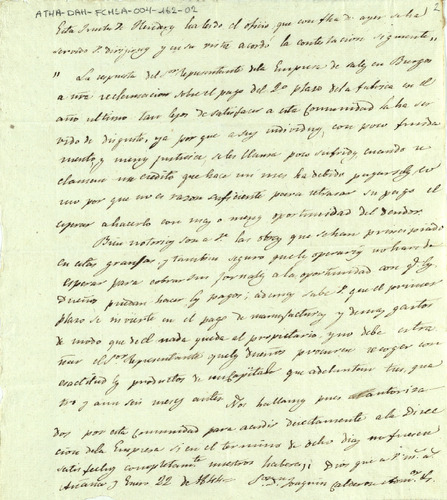 ATHA-DAH-FCHLA-004-162-02
Esta Junta de Heredros ha leido el oficio que con fha de ayer se ha
servido V. dirigirnos y en su vista acordó la contestacion siguiente
" La respuesta del Sor Representante dela Empresa de sales en Burgos
a nra reclamacion sobre el pago del 2o plazo dela fabrica en el
año ultimo tan lejos de satisfacer a esta Comunidad la ha ser
vido de disgusto, ya por que a sus individuos, con poco funda
mento, y menos justicia, se les llama poco sufridos cuando re
claman un credito que hace un mes ha debido pagarseles, co
mo por que no es razon suficiente para retrasar su pago el
esperar a hacerlo con mas o menos oportunidad del deudor.
Bien notorias son a V. las obras que se han principiado
en estas granjas, y tambien seguro que los operarios no han de
esperar para cobrar sus jornales a la oportunidad con que los
Dueños puedan hacer los pagos; ademas sabe V. que el primer
plazo se invierte en el pago de manufacturas y demas gastos
de modo que de el nada queda al propietario, y no debe estra
ñar el Sor Representante que los dueños procuren recoger con
exactitud los productos de un capital que adelantan tres, qua
tro y aun seis meses antes. Nos hallamos pues autoriza
dos por esta comunidad para acudir directamente a la Direc
cion dela Empresa si en el termino de ocho dias no fueren
satisfechos completamente nuestros haberes; Dios que a V. ms as
Añana y Enero 22 de
Joaquin